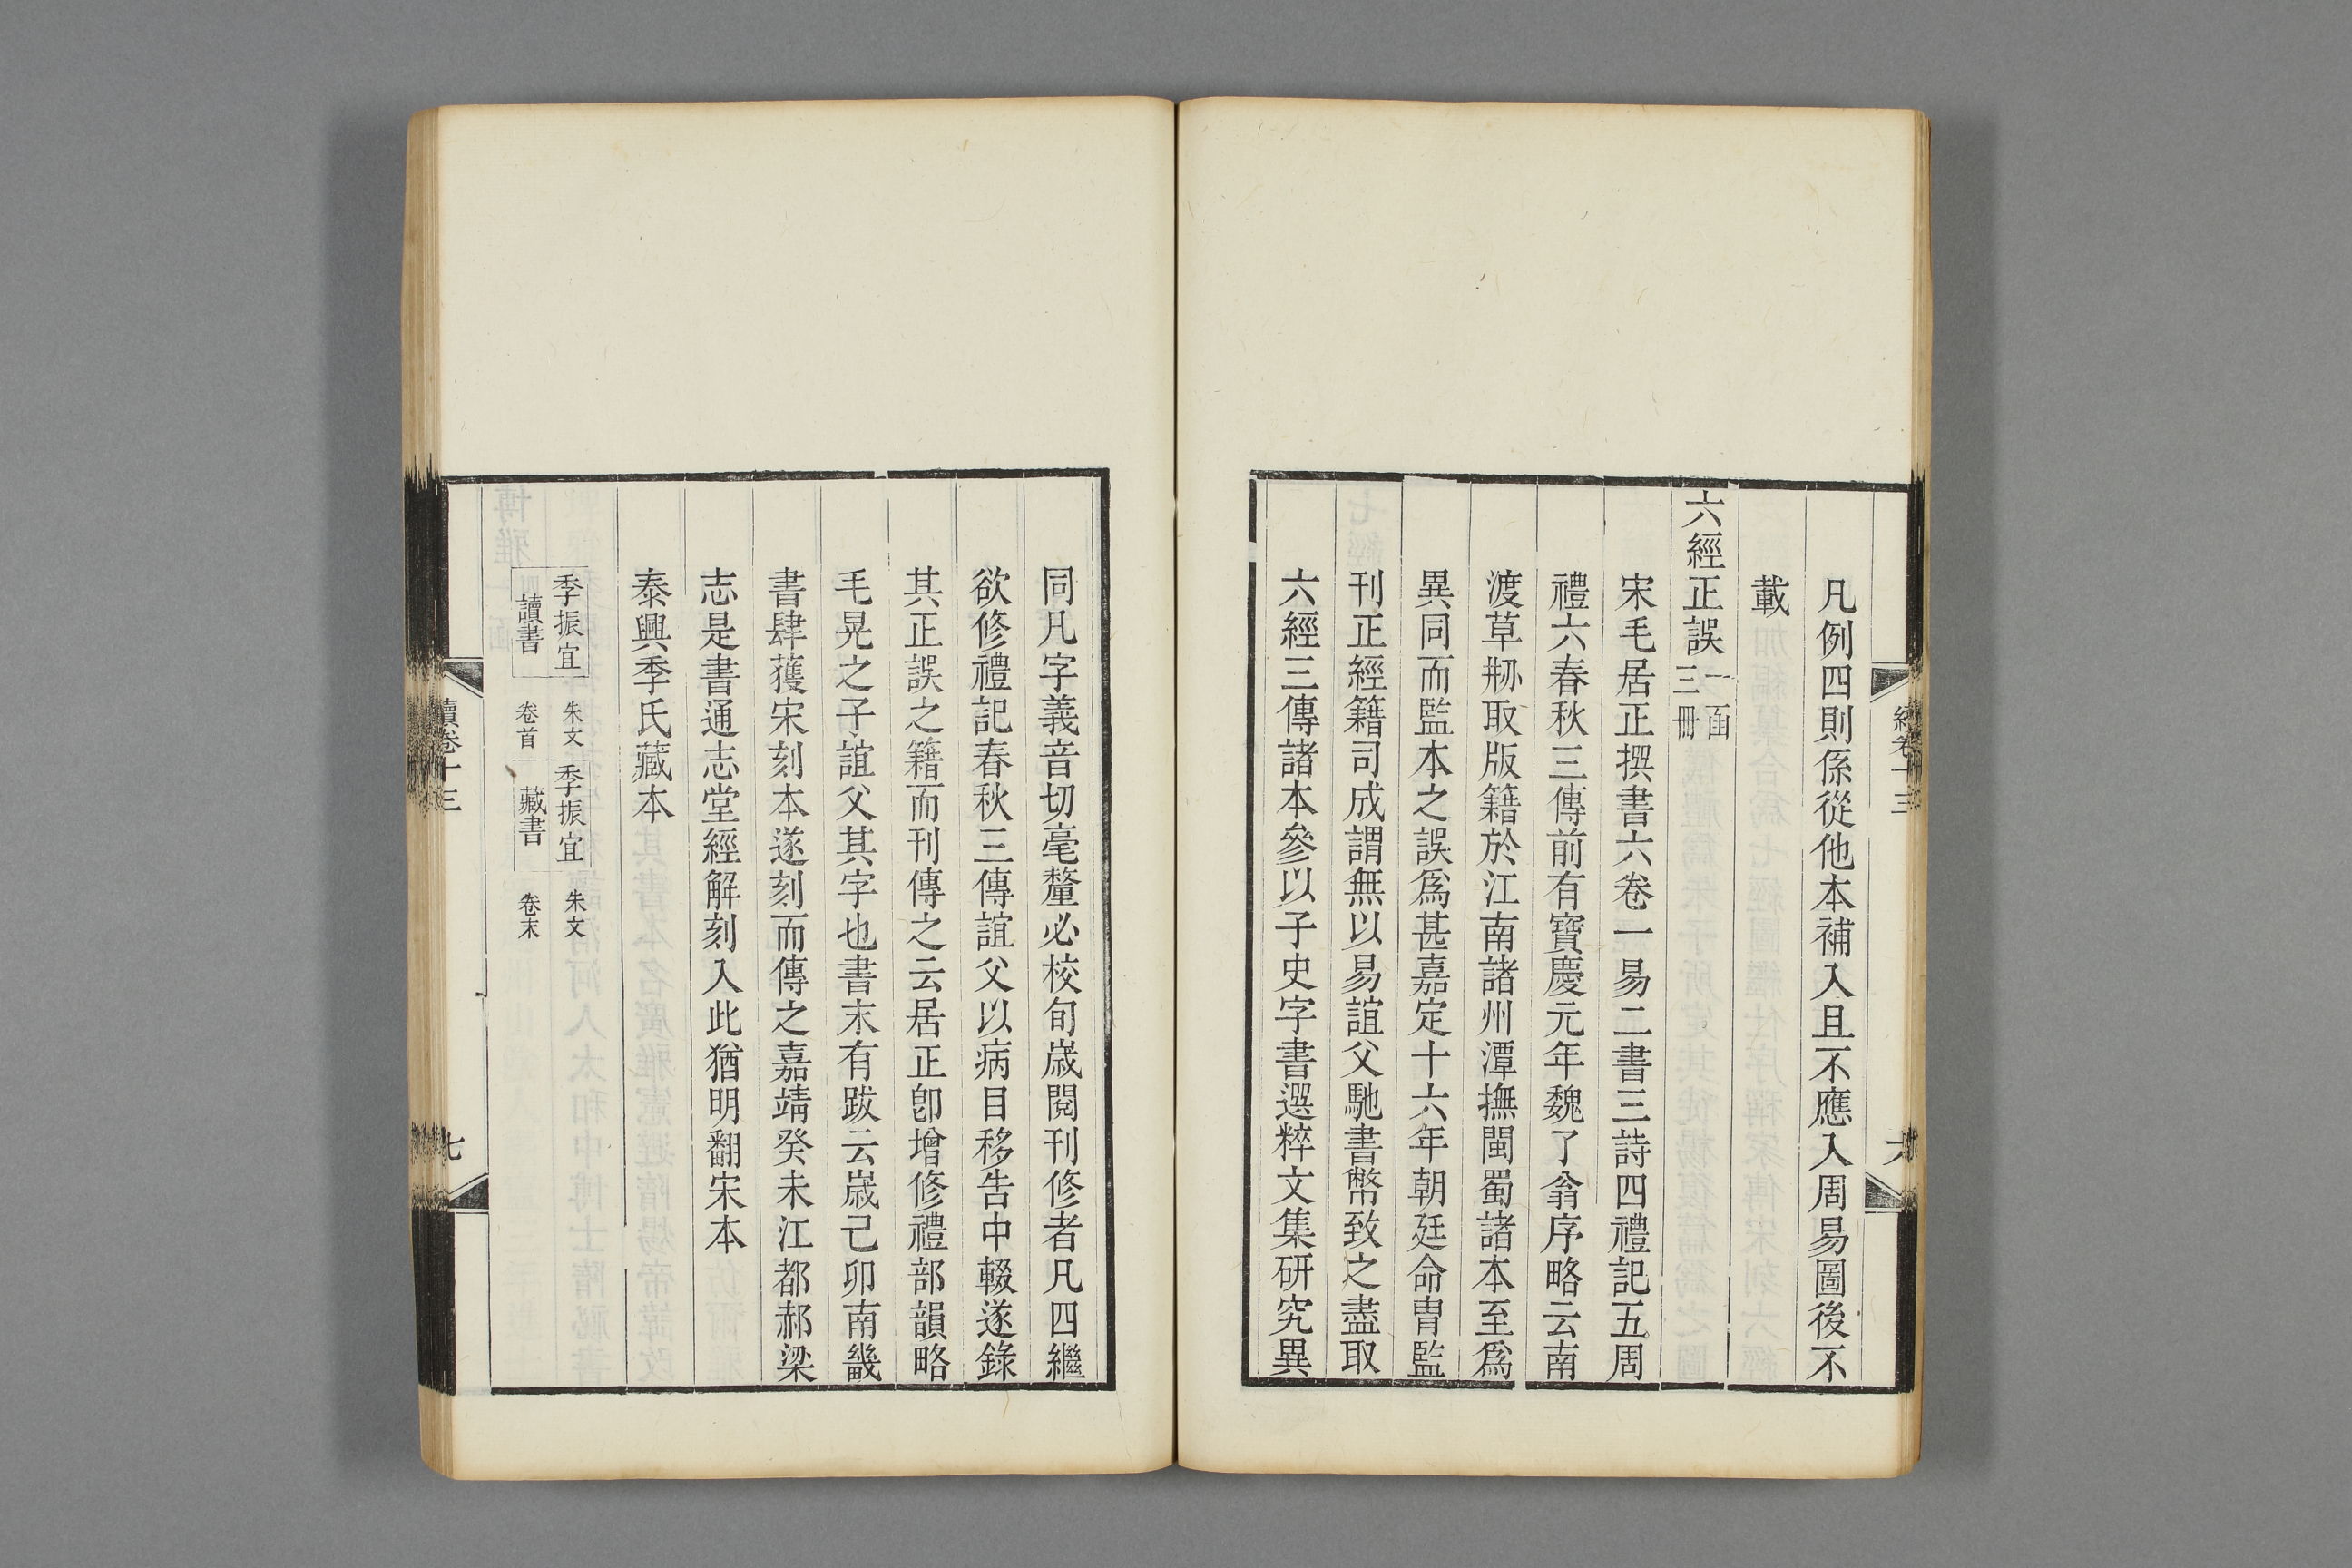 凡例四則係從他本補入且不應入周易圖後不
載
六經正誤一函三冊
宋毛居正撰書六卷一易二書三詩四禮記五周
禮六春秋三傳前有寶慶元年魏了翁序略云南
渡草刱取版籍於江南諸州潭撫閩蜀諸本至爲
異同而監本之誤爲甚嘉定十六年朝廷命胄監
刊正經籍司成謂無以易誼父馳書幣致之盡取
六經三傳諸本參以子史字書選粹文集研究異
同凡字義音切毫釐必校旬歲閱刊修者凡四繼
欲修禮記春秋三傳誼父以病目移告中輟遂錄
其正誤之籍而刊傳之云居正卽增修禮部韻略
毛晃之子誼父其字也書末有跋云歲己卯南畿
書肆獲宋刻本遂刻而傳之嘉靖癸未江都郝梁
志是書通志堂經解刻入此猶明翻宋本
泰興季氏藏本
季振宜讀書
朱文卷首
季振宜藏書
朱文卷末
續卷十三
七